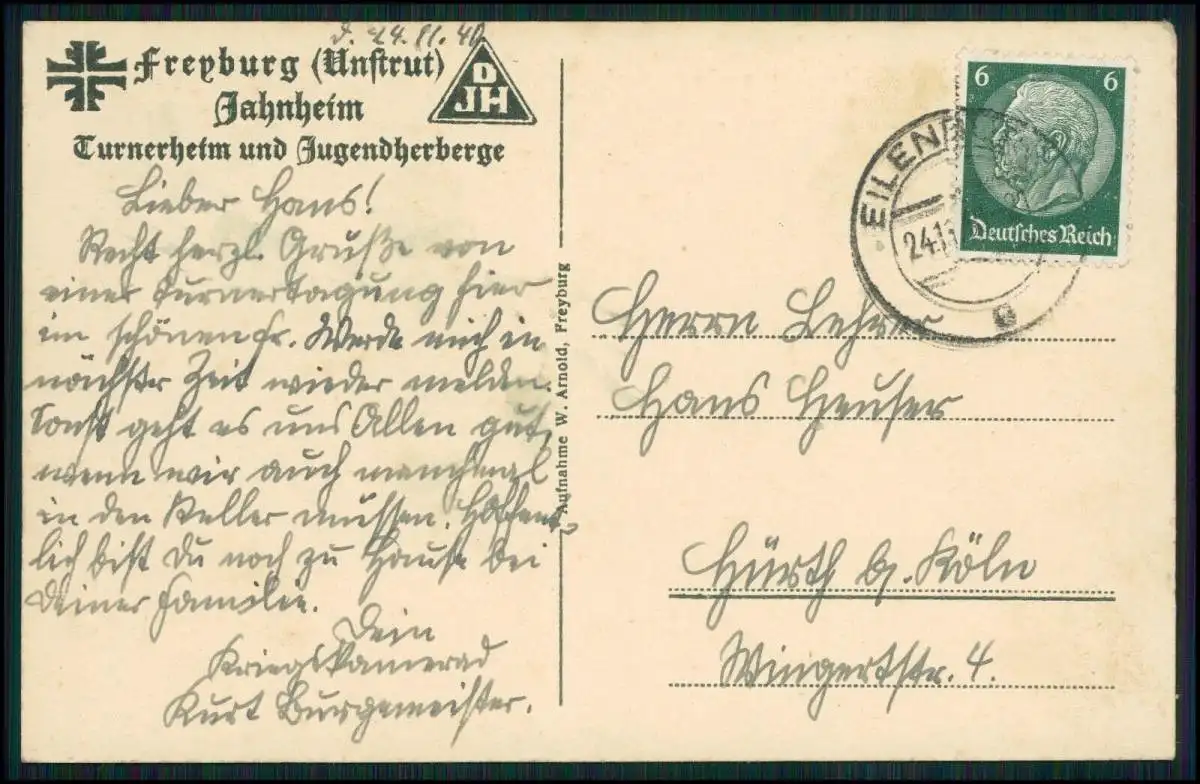 d. 24.11.40
Freyburg (Unstrut)
Jahnheim
Turnerheim und Jugendherberge
D
JH
Lieber Hans!
Recht herzl. Grüße von
einer Turnertagung hier
im schönen Fr. Werde mich in
nächster Zeit wieder melden.
Sonst geht es uns Allen gut,
wenn wir auch manchmal
in den Keller müssen. Hoffent-
lich bist Du noch zu Hause bei
Deiner Familie.
Dein
Kriegskamerad
Kurt Burgemeister.
Aufnahme W. Arnold, Freyburg
6 6
Deutsches Reich
EILENB
24.11
Herrn Lehrer
Hans Heuser
Hürth b. Köln
Wingertstr. 4.